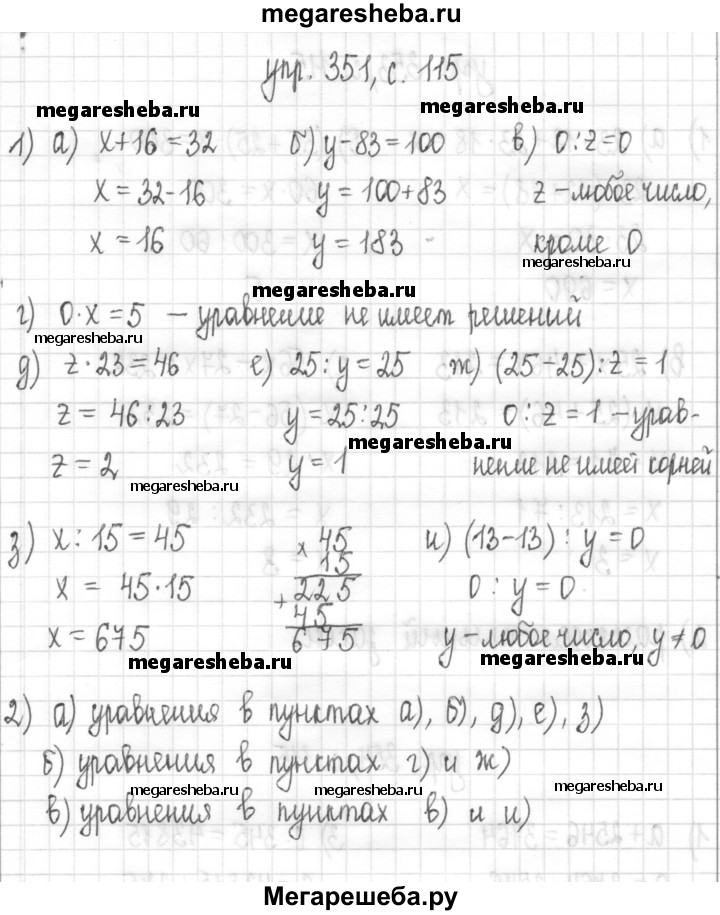 megaresheba.ru
упр. 351, с. 115
megaresheba.ru megaresheba.ru
1) а) x+16=32 б) y-83=100 в) 0:z=0
x=32-16 y=100+83 z - любое число,
x=16 y=183 кроме 0
megaresheba.ru
megaresheba.ru
г) 0·x=5 - уравнение не имеет решений
megaresheba.ru
д) z·23=46 е) 25:y=25 ж) (25-25):z=1
z=46:23 y=25:25 0:z=1 - урав-
megaresheba.ru
z=2 y=1 нение не имеет корней
megaresheba.ru
з) x:15=45 ×45 и) (13-13):y=0
15
x=45·15 +225 0:y=0
45
x=675 675 y - любое число, y≠0
megaresheba.ru megaresheba.ru
2) а) уравнения в пунктах а), б), д), е), з)
б) уравнения в пунктах г) и ж)
megaresheba.ru megaresheba.ru megaresheba.ru
в) уравнения в пунктах в) и и)
Мегарешеба.ру